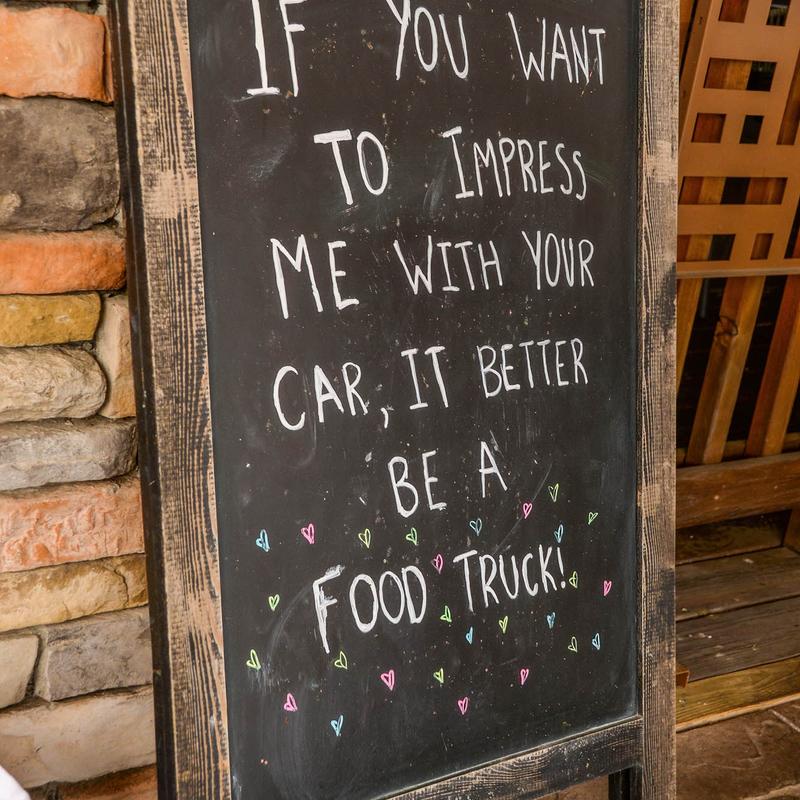 IF YOU WANT
TO IMPRESS
ME WITH YOUR
CAR, IT BETTER
BE A
FOOD TRUCK!